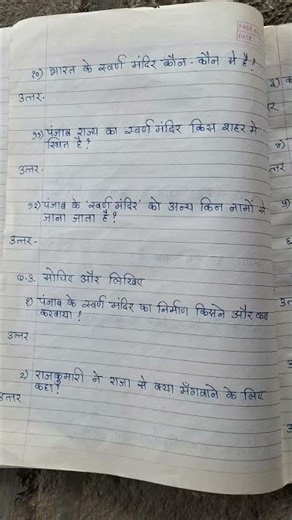 PAGE
DATE
१०) भारत के स्वर्ण मंदिर कौन-कौन से है?
उत्तर-
११) पंजाब राज्य का स्वर्ण मंदिर किस शहर में
स्थित है?
उत्तर-
१२) पंजाब के 'स्वर्ण मंदिर' को अन्य किन नामों से
जाना जाता है?
उत्तर-
Q-3. सोचिए और लिखिए
१) पंजाब के स्वर्ण मंदिर का निर्माण किसने और कब
करवाया?
उत्तर
२) राजकुमारी ने राजा से क्या मँगवाने के लिए
कहा?
उत्तर